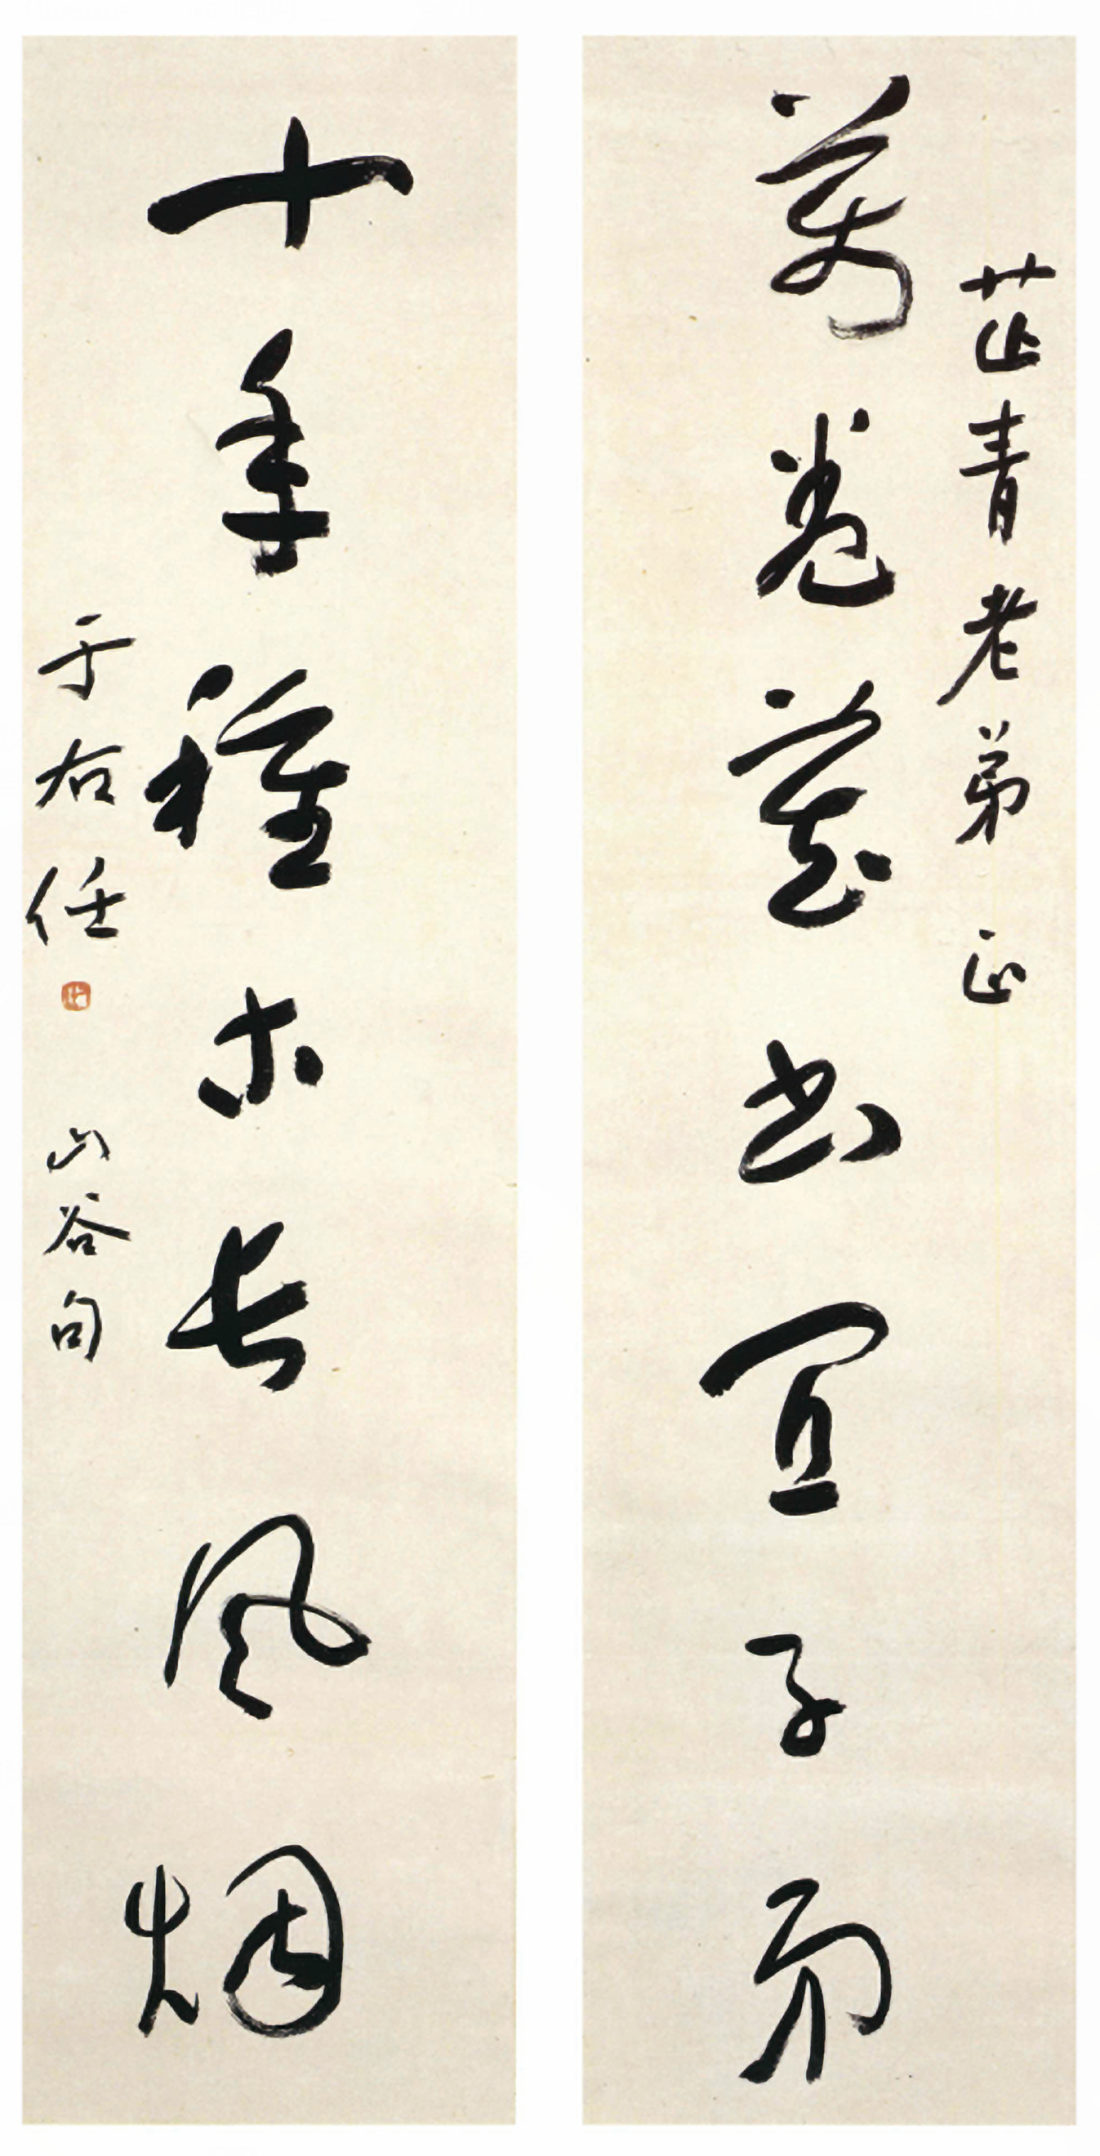 芷青老弟正
萬卷藏書宜子弟
十年種木長風烟
于右任
山谷句